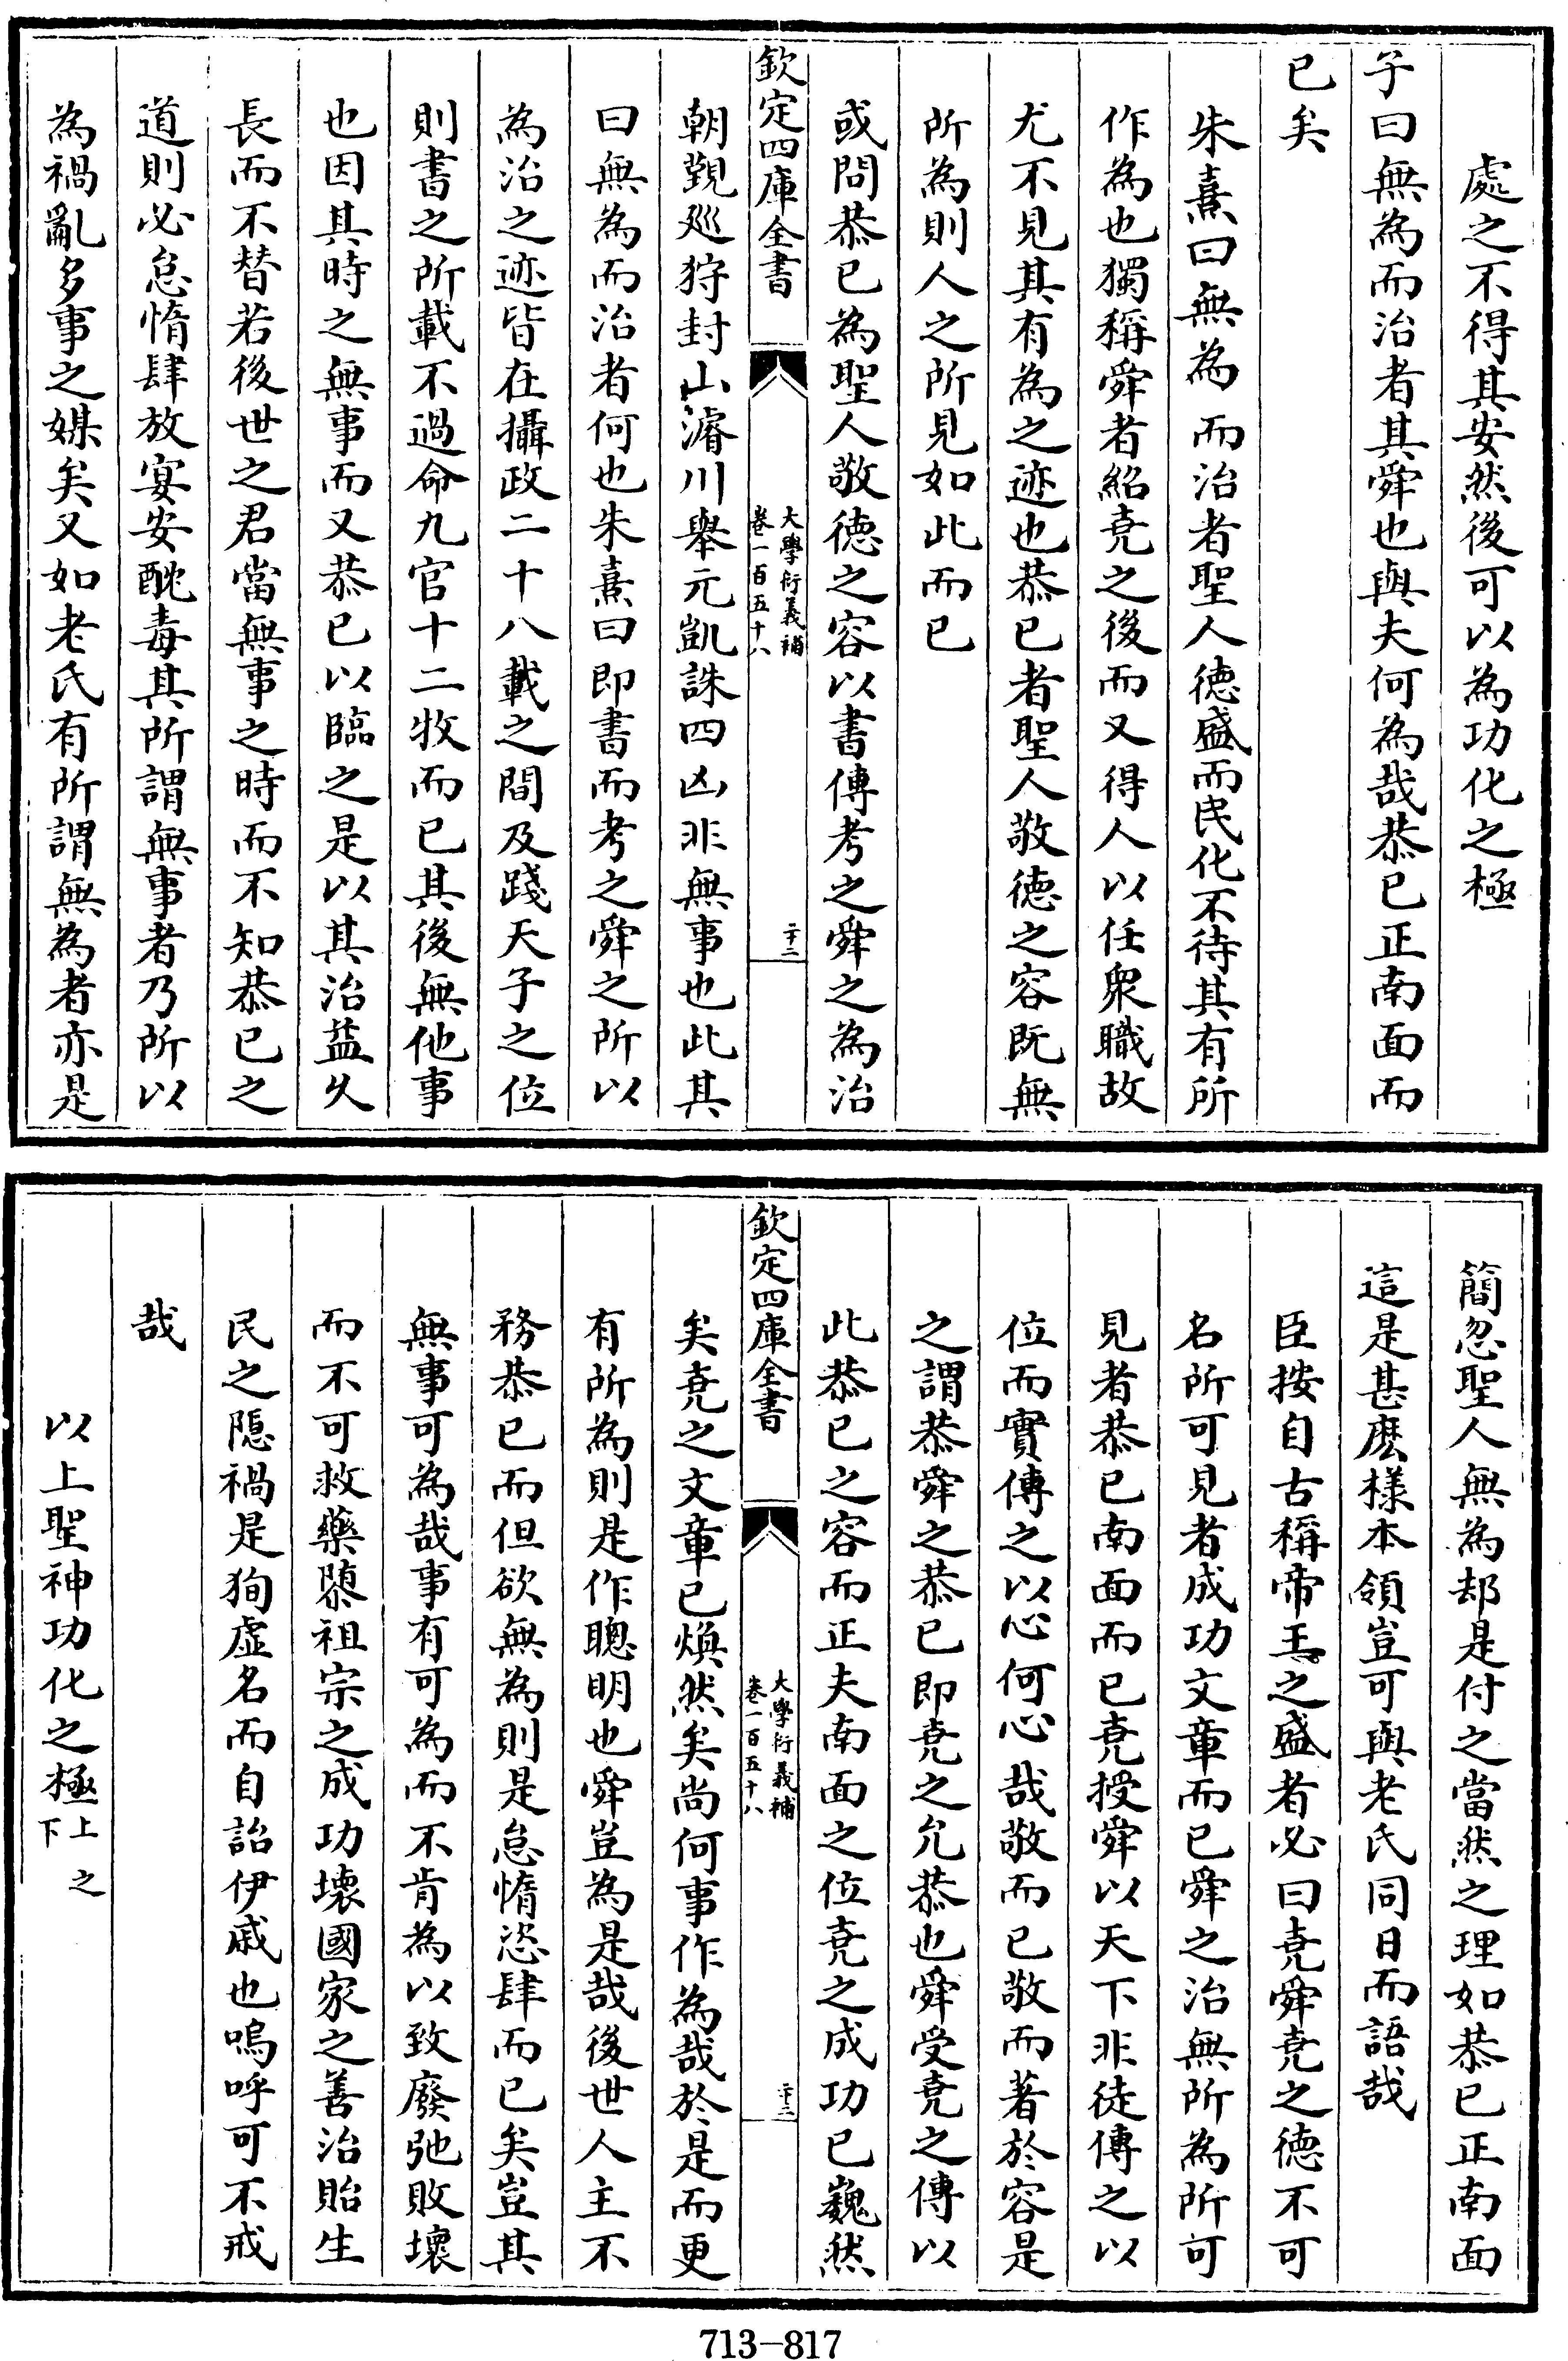 處之不得其安然後可以為功化之極
子曰無為而治者其舜也與夫何為哉恭已正南面而
已矣
朱熹曰無為而治者聖人德盛而民化不待其有所
作為也獨稱舜者紹堯之後而又得人以任衆職故
尤不見其有為之迹也恭已者聖人敬德之容既無
所為則人之所見如此而已
或問恭已為聖人敬德之容以書傳考之舜之為治
欽定四庫全書
大學衍義補
卷一百五十八
二十二
朝覲廵狩封山濬川舉元凱誅四凶非無事也此其
曰無為而治者何也朱熹曰即書而考之舜之所以
為治之迹皆在攝政二十八載之間及踐天子之位
則書之所載不過命九官十二牧而已其後無他事
也因其時之無事而又恭已以臨之是以其治益久
長而不替若後世之君當無事之時而不知恭已之
道則必怠惰肆放宴安酖毒其所謂無事者乃所以
為禍亂多事之媒矣又如老氏有所謂無為者亦是
簡忽聖人無為却是付之當然之理如恭已正南面
這是甚麽樣本領豈可與老氏同日而語哉
臣按自古稱帝王之盛者必曰堯舜堯之德不可
名所可見者成功文章而已舜之治無所為所可
見者恭已南面而已堯授舜以天下非徒傳之以
位而實傳之以心何心哉敬而已敬而著於容是
之謂恭舜之恭已即堯之允恭也舜受堯之傳以
此恭已之容而正夫南面之位堯之成功已巍然
欽定四庫全書
大學衍義補
卷一百五十八
二十三
矣堯之文章已煥然矣尚何事作為哉於是而更
有所為則是作聰明也舜豈為是哉後世人主不
務恭已而但欲無為則是怠惰恣肆而已矣豈其
無事可為哉事有可為而不肯為以致廢弛敗壞
而不可救藥隳祖宗之成功壞國家之善治貽生
民之隱禍是狥虛名而自詒伊戚也嗚呼可不戒
哉
以上聖神功化之極上之下
713-817